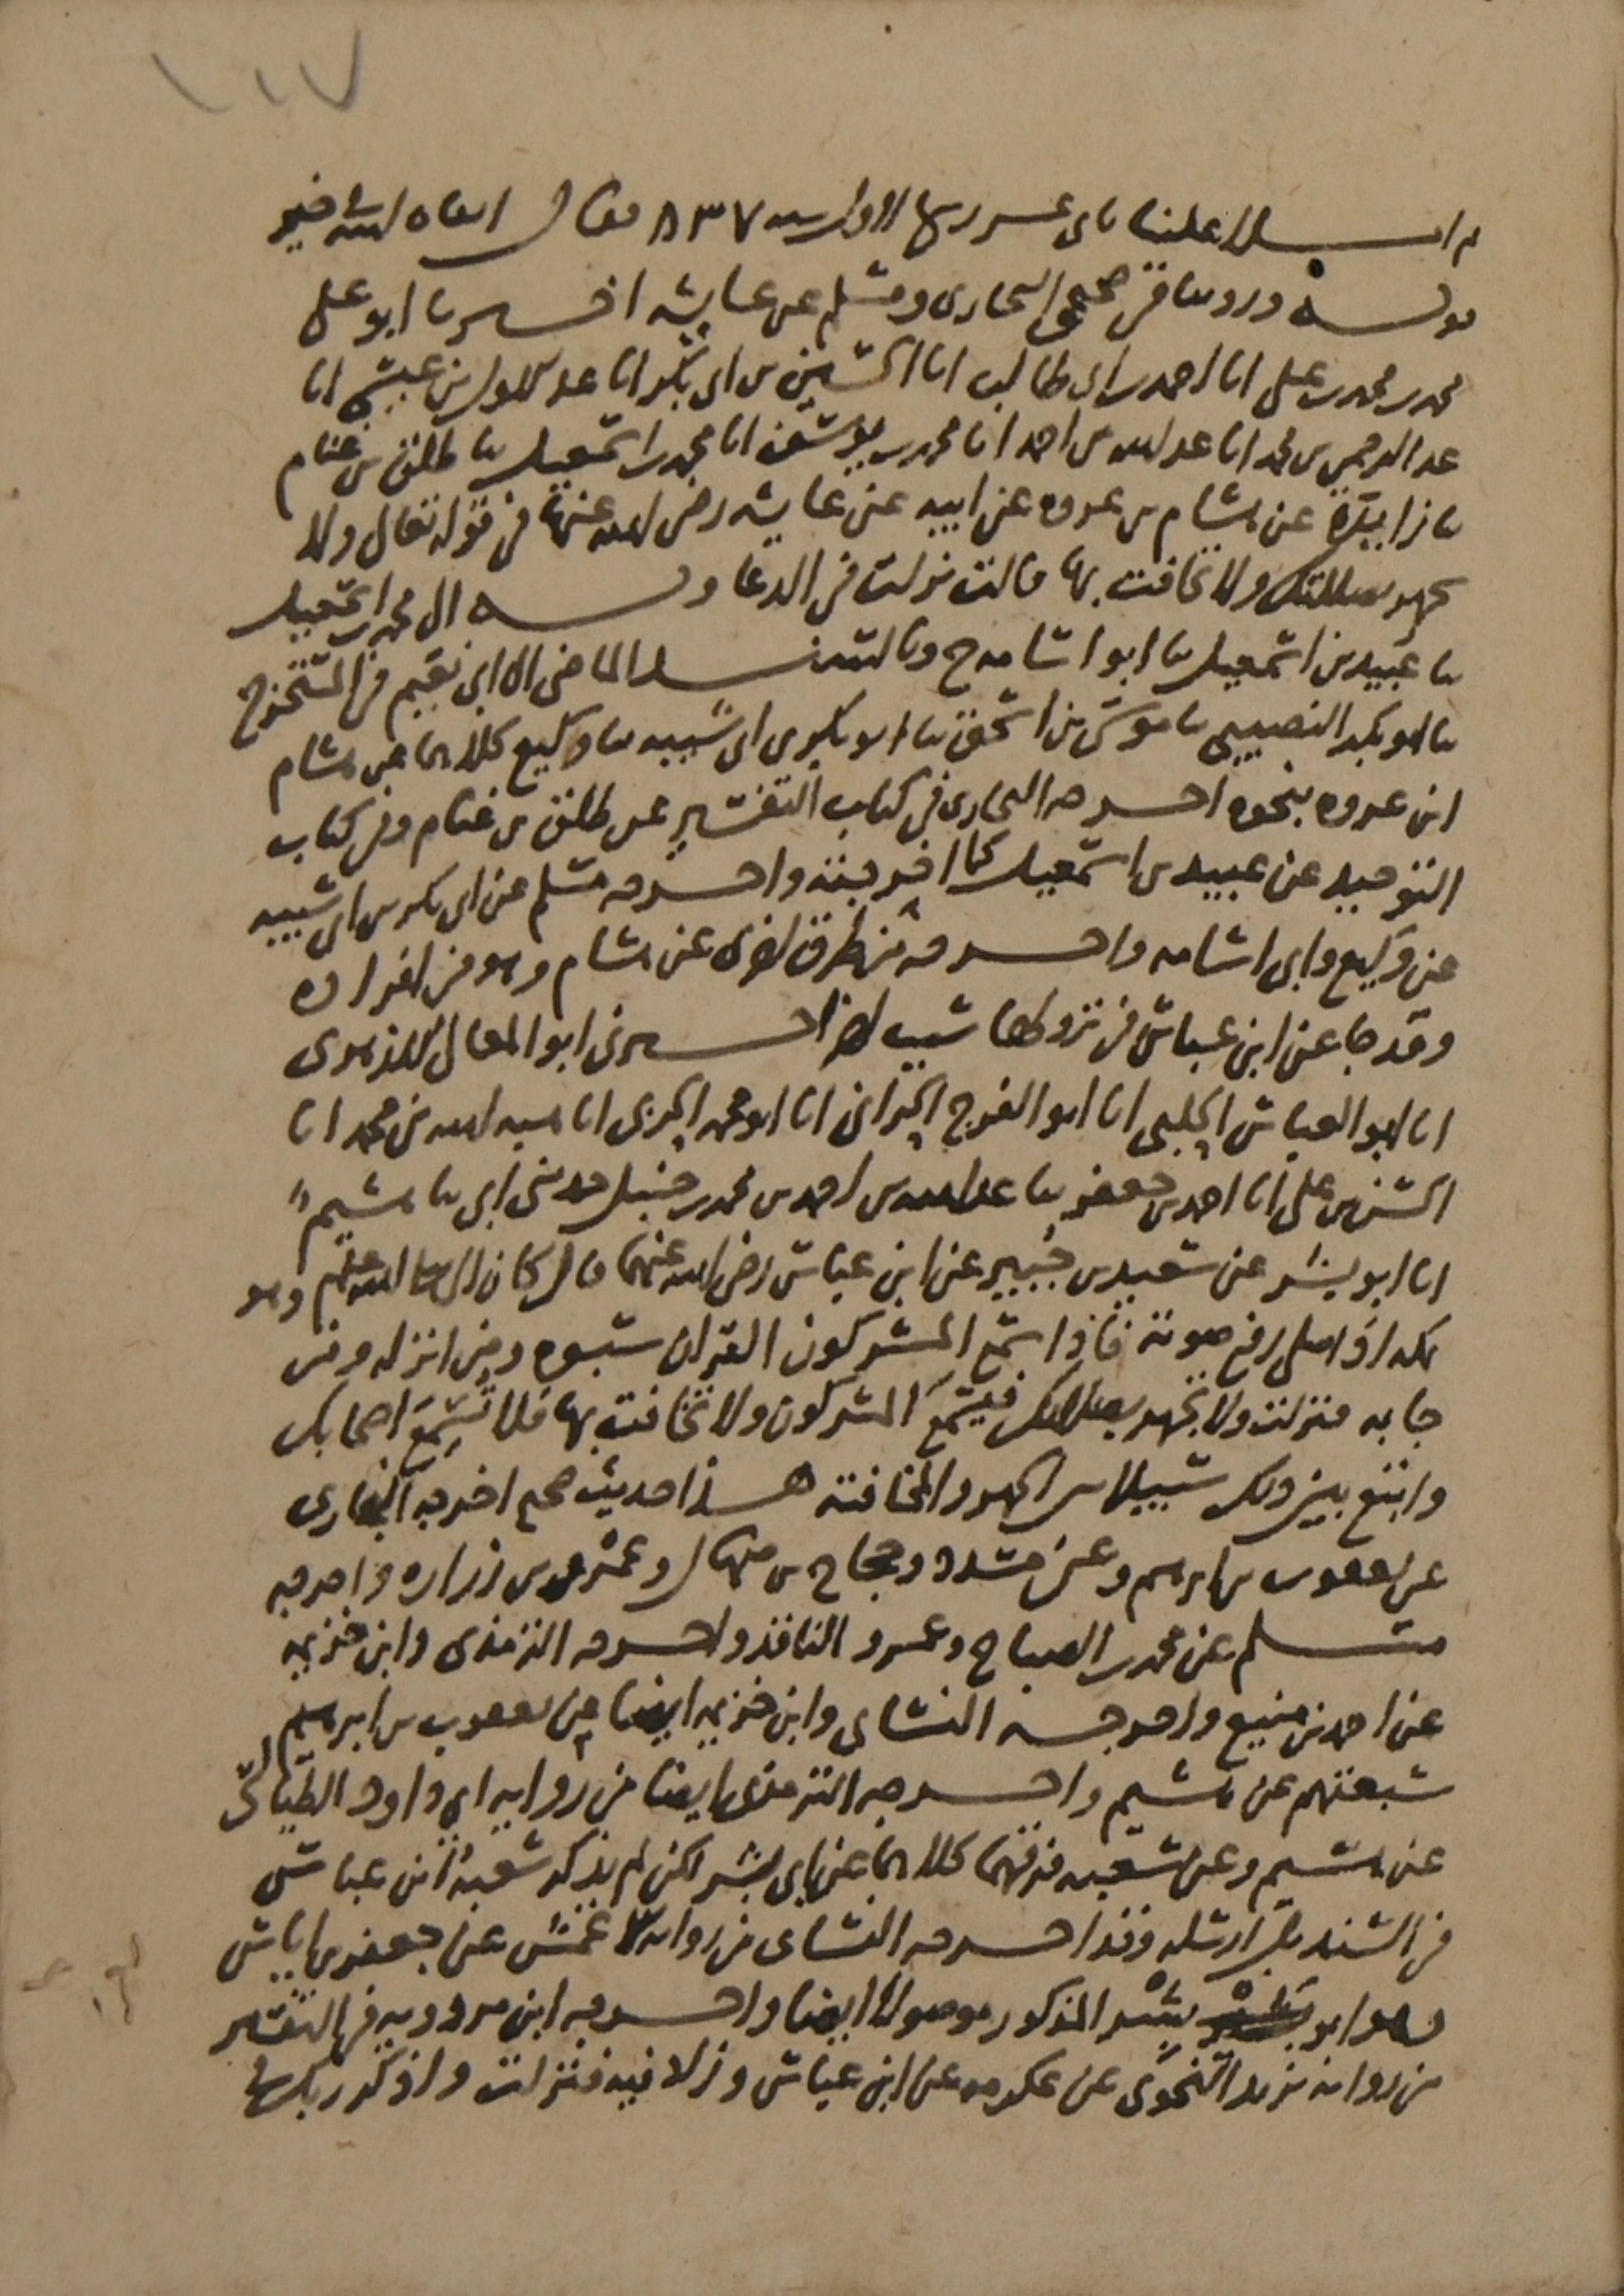 ١١٧
ثم املا علينا ثانى عشر ربيع الاول سنه ٨٣٧ فقال ابقاه الله فى خير
قوله وروينا فى صحيحى البخارى ومسلم عن عايشه اخبرنا ابو على
محمد بن محمد بن على انا احمد بن ابى طالب انا الحسين بن ابى بكر انا عبد الاول بن عيسى انا
عبد الرحمن بن محمد انا عبد الله بن احمد انا محمد بن يوسف انا محمد بن اسمعيل نا طلق بن غنام
نا زايدة عن هشام بن عروه عن ابيه عن عايشه رضى الله عنها فى قوله تعالى ولا
تجهر بصلاتك ولا تخافت بها قالت نزلت فى الدعا وبه الى محمد بن اسمعيل
نا عبيد بن اسمعيل نا ابو اسامه ح وبالسند الماضى الى ابى نعيم فى المستخرج
نا ابو بكر النصيبى نا موسى بن اسحق نا ابو بكر بن ابى شيبه نا وكيع كلاهما عن هشام
ابن عروه بنحوه اخرجه البخارى فى كتاب التفسير عن طلق بن غنام وفى كتاب
التوحيد عن عبيد بن اسمعيل كما اخرجته واخرجه مسلم عن ابى بكر بن ابى شيبه
عن وكيع وابى اسامه واخرجه من طرق اخرى عن هشام وهو من افراده
وقد جا عن ابن عباس فى نزولها سبب اخر اخبرنى ابو المعالى الازهرى
انا ابو العباس الحلبى انا ابو الفرج الحرانى انا ابو محمد الحربى انا هبه الله بن محمد انا
الحسن بن على انا احمد بن جعفر نا عبد الله بن احمد بن محمد بن حنبل حدثنى ابى نا هشيم
انا ابو بشر عن سعيد بن جبير عن ابن عباس رضى الله عنهما قال كان النبى صلى الله عليه وسلم وهو
بمكه اذا صلى رفع صوته فاذا سمع المشركون القران سبوه ومن انزله ومن
جا به فنزلت ولا تجهر بصلاتك فيسمع المشركون ولا تخافت بها فلا تسمع اصحابك
وابتغ بين ذلك سبيلا بين الجهر والمخافته هذا حديث صحيح اخرجه البخارى
عن يعقوب بن ابرهيم وعن مسدد وحجاج بن منهال وعمرو بن زراره واخرجه
مسلم عن محمد بن الصباح وعمرو الناقد واخرجه الترمذى وابن خزيمه
عن احمد بن منيع واخرجه النساى وابن خزيمه ايضا عن يعقوب بن ابرهيم
سبعتهم عن هشيم واخرجه الترمذى ايضا من روايه ابى داود الطيالسى
عن هشيم وعن شعبه فرقهما كلاهما عن ابى بشر لكن لم يذكر شعبة ابن عباس
فى السند بل ارسله وقد اخرجه النساى من روايه الاعمش عن جعفر بن اياس
وهو ابو بشر المذكور موصولا ايضا واخرجه ابن مردويه فى التفسير
من روايه يزيد النحوى عن عكرمه عن ابن عباس وزاد فيه فنزلت واذكر ربك